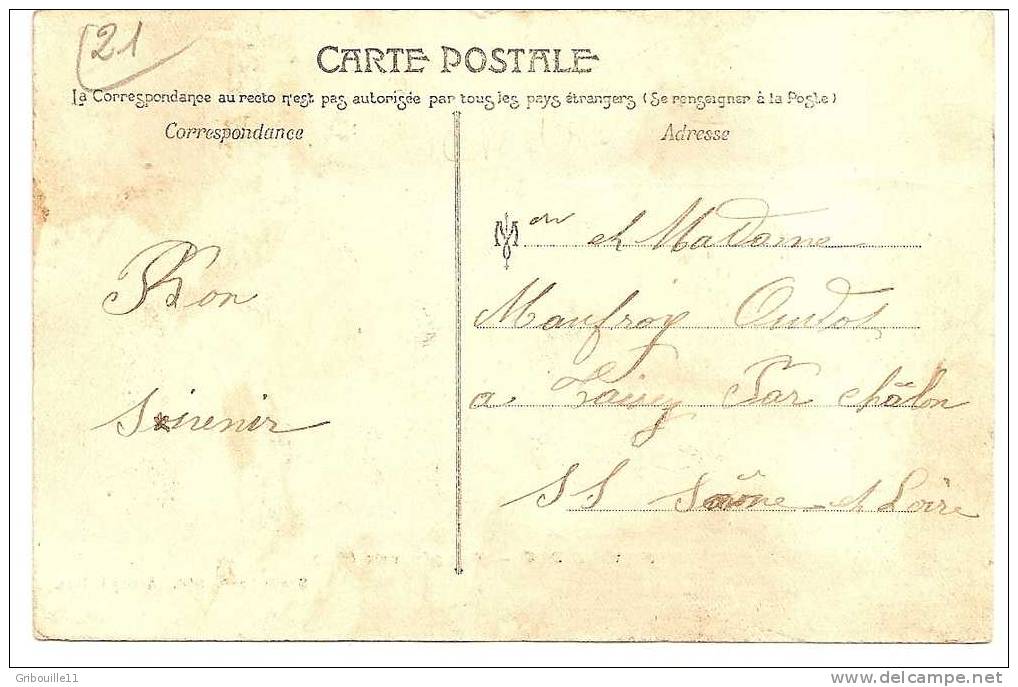 21
CARTE POSTALE
La Correspondance au recto n'est pas autorisée par tous les pays étrangers (Se renseigner à la Poste)
Correspondance
Adresse
Bon
Souvenir
Mon et Madame
Maufroy Oudot
a par Châlon
SS Saône et Loire
Gribouille11
www.delcampe.net